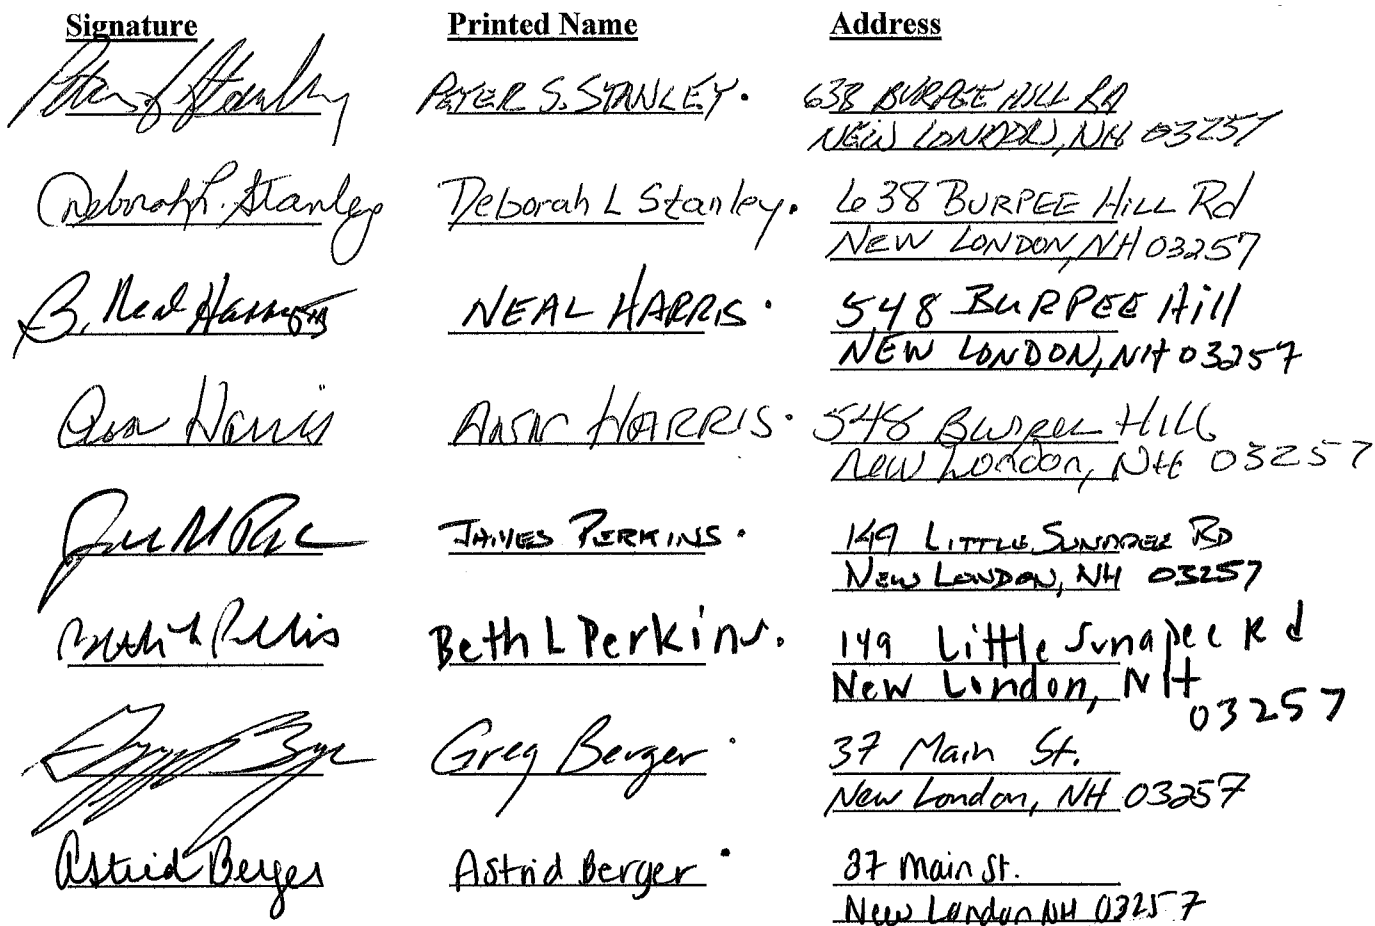 Signature Printed Name Address
Peter S. Stanley PETER S. STANLEY. 638 BURPEE HILL RD
NEW LONDON, NH 03257
Deborah L. Stanley Deborah L Stanley. 638 BURPEE HILL Rd
NEW LONDON, NH 03257
B. Neal Harris NEAL HARRIS. 548 BURPEE Hill
NEW LONDON, NH 03257
Ann Harris ANN HARRIS. 548 Burpee HILL
New London, NH 03257
JAMES PERKINS. 149 LITTLE SUNAPEE RD
NEW LONDON, NH 03257
Beth L Perkins. 149 Little Sunapee Rd
New London, NH
03257
Greg Berger. 37 Main St.
New London, NH 03257
Astrid Berger Astrid Berger. 37 Main St.
New London NH 03257